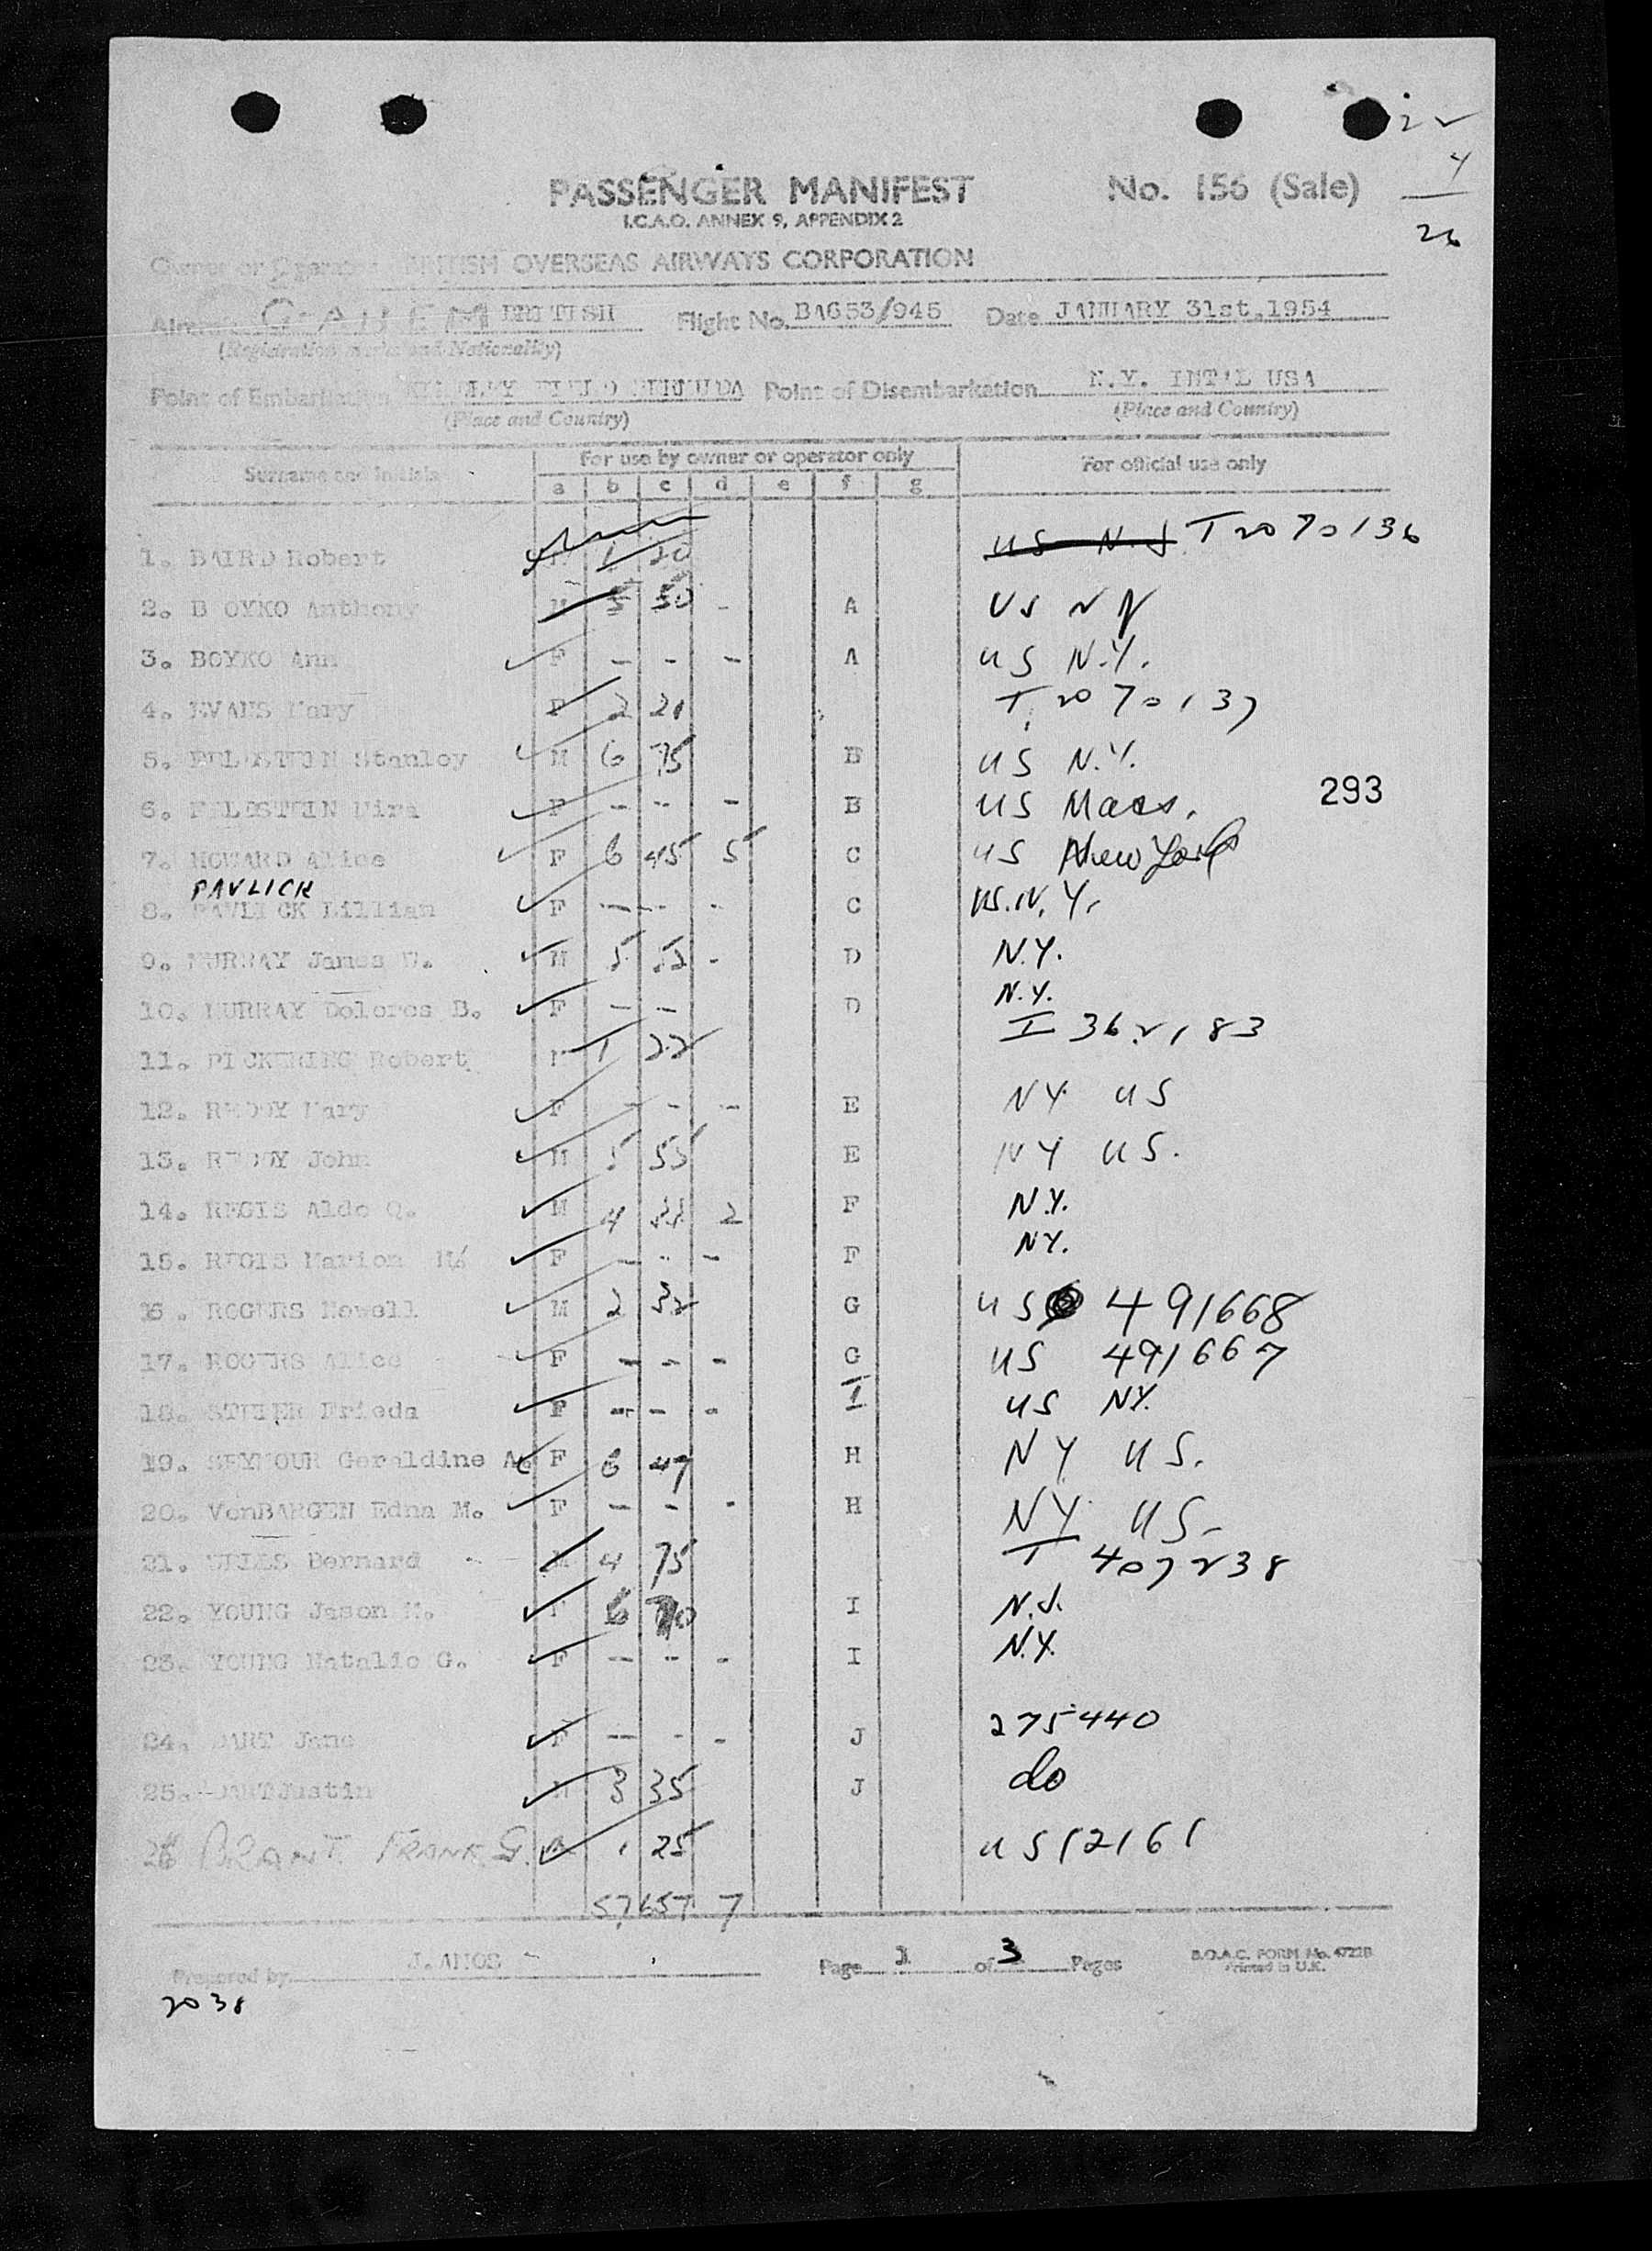 22
4
26
PASSENGER MANIFEST No. 156 (Sale)
I.C.A.O. ANNEX 9, APPENDIX 2
Owner or Operator BRITISH OVERSEAS AIRWAYS CORPORATION
BRITISH Flight No. BA653/945 Date JANUARY 31st,1954
(Registration marks and Nationality)
Point of Embarkation KINDLEY FIELD BERMUDA Point of Disembarkation N.Y. INT'L USA
(Place and Country) (Place and Country)
Surname and Initials For use by owner or operator only For official use only
a b c d e f g
1. BAIRD Robert 1 20 US N.J. T2070136
2. BOYKO Anthony M 5 50 - A US NY
3. BOYKO Ann F - - - A US N.Y.
4. EVANS Mary F 2 21 T2070137
5. FELDSTEIN Stanley M 6 75 B US N.Y.
6. FELDSTEIN F - - - B US Mass.
293
7. HOWARD Alice F 6 45 5 C US New York
PAVLICH
8. PAVLICK Lillian F - - - C US. N.Y.
9. MURRAY James W. M 5 55 - D N.Y.
10. MURRAY Dolores B. F - - D N.Y.
11. PICKERING Robert 1 22 I 362183
12. REDDY Mary F - - - E NY US
13. REDDY John M 5 55 E NY US.
14. REGIS Aldo Q. M 4 33 2 F N.Y.
15. REGIS Marion F - - - F NY.
16. ROGERS Howell M 2 32 G US 491668
17. ROGERS Alice F - - - G US 491667
18. Frieda F - - - I US NY.
19. SEYMOUR Geraldine A. F 6 47 H NY US.
20. VonBARGEN Edna M. F - - - H NY US-
21. Bernard M 4 75 I 407238
22. YOUNG Jason M. 6 70 I N.J.
23. YOUNG Natalie G. F - - - I N.Y.
24. DART Jane F - - - J 275440
25. DART Justin M 3 35 J do
26 BRANT FRANK G. 1 25 US12161
57 657 7
Prepared by J. AMOS Page 1 of 3 Pages B.O.A.C. FORM No. 4722B
Printed in U.K.
2038